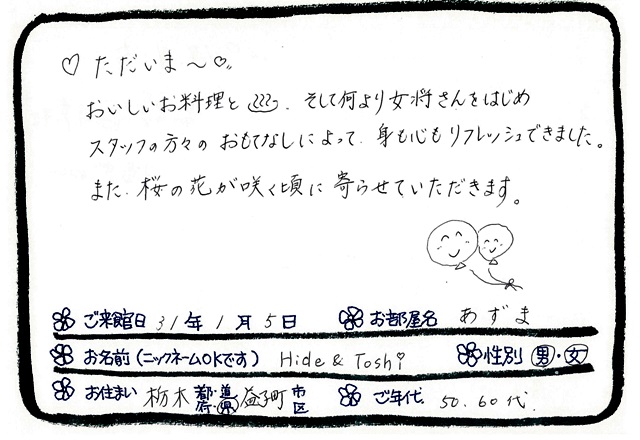 ♡ ただいま～♡〃
おいしいお料理と♨、そして何より女将さんをはじめ
スタッフの方々のおもてなしによって、身も心もリフレッシュできました。
また、桜の花が咲く頃に寄らせていただきます。
ご来館日 31年 1月 5日 お部屋名 あずま
お名前(ニックネームOKです) Hide & Toshi 性別 男・女
お住まい 栃木 都・道・府・県 益子町 市区 ご年代 50.60代.